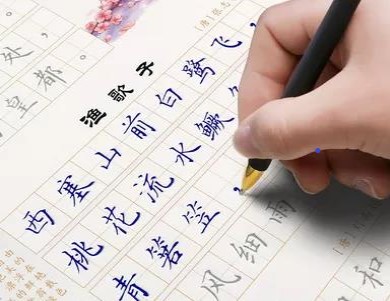 处，
皇都。
渔歌子
[唐]张志
西塞山前白鹭飞，
桃花流水鳜
青箬笠，
风细雨
[唐]
和